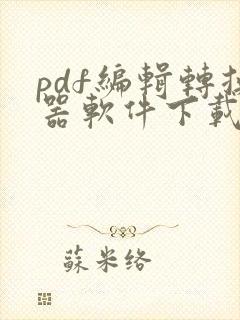 pdf編輯轉換
器軟件下載
蘇米络